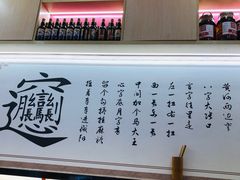 黄河两边弯
八字大张口
言字往里走
左一扭右一扭
西一长东一长
中间加个马大王
心字底月字旁
留个勾挂麻糖
推着车车进咸阳